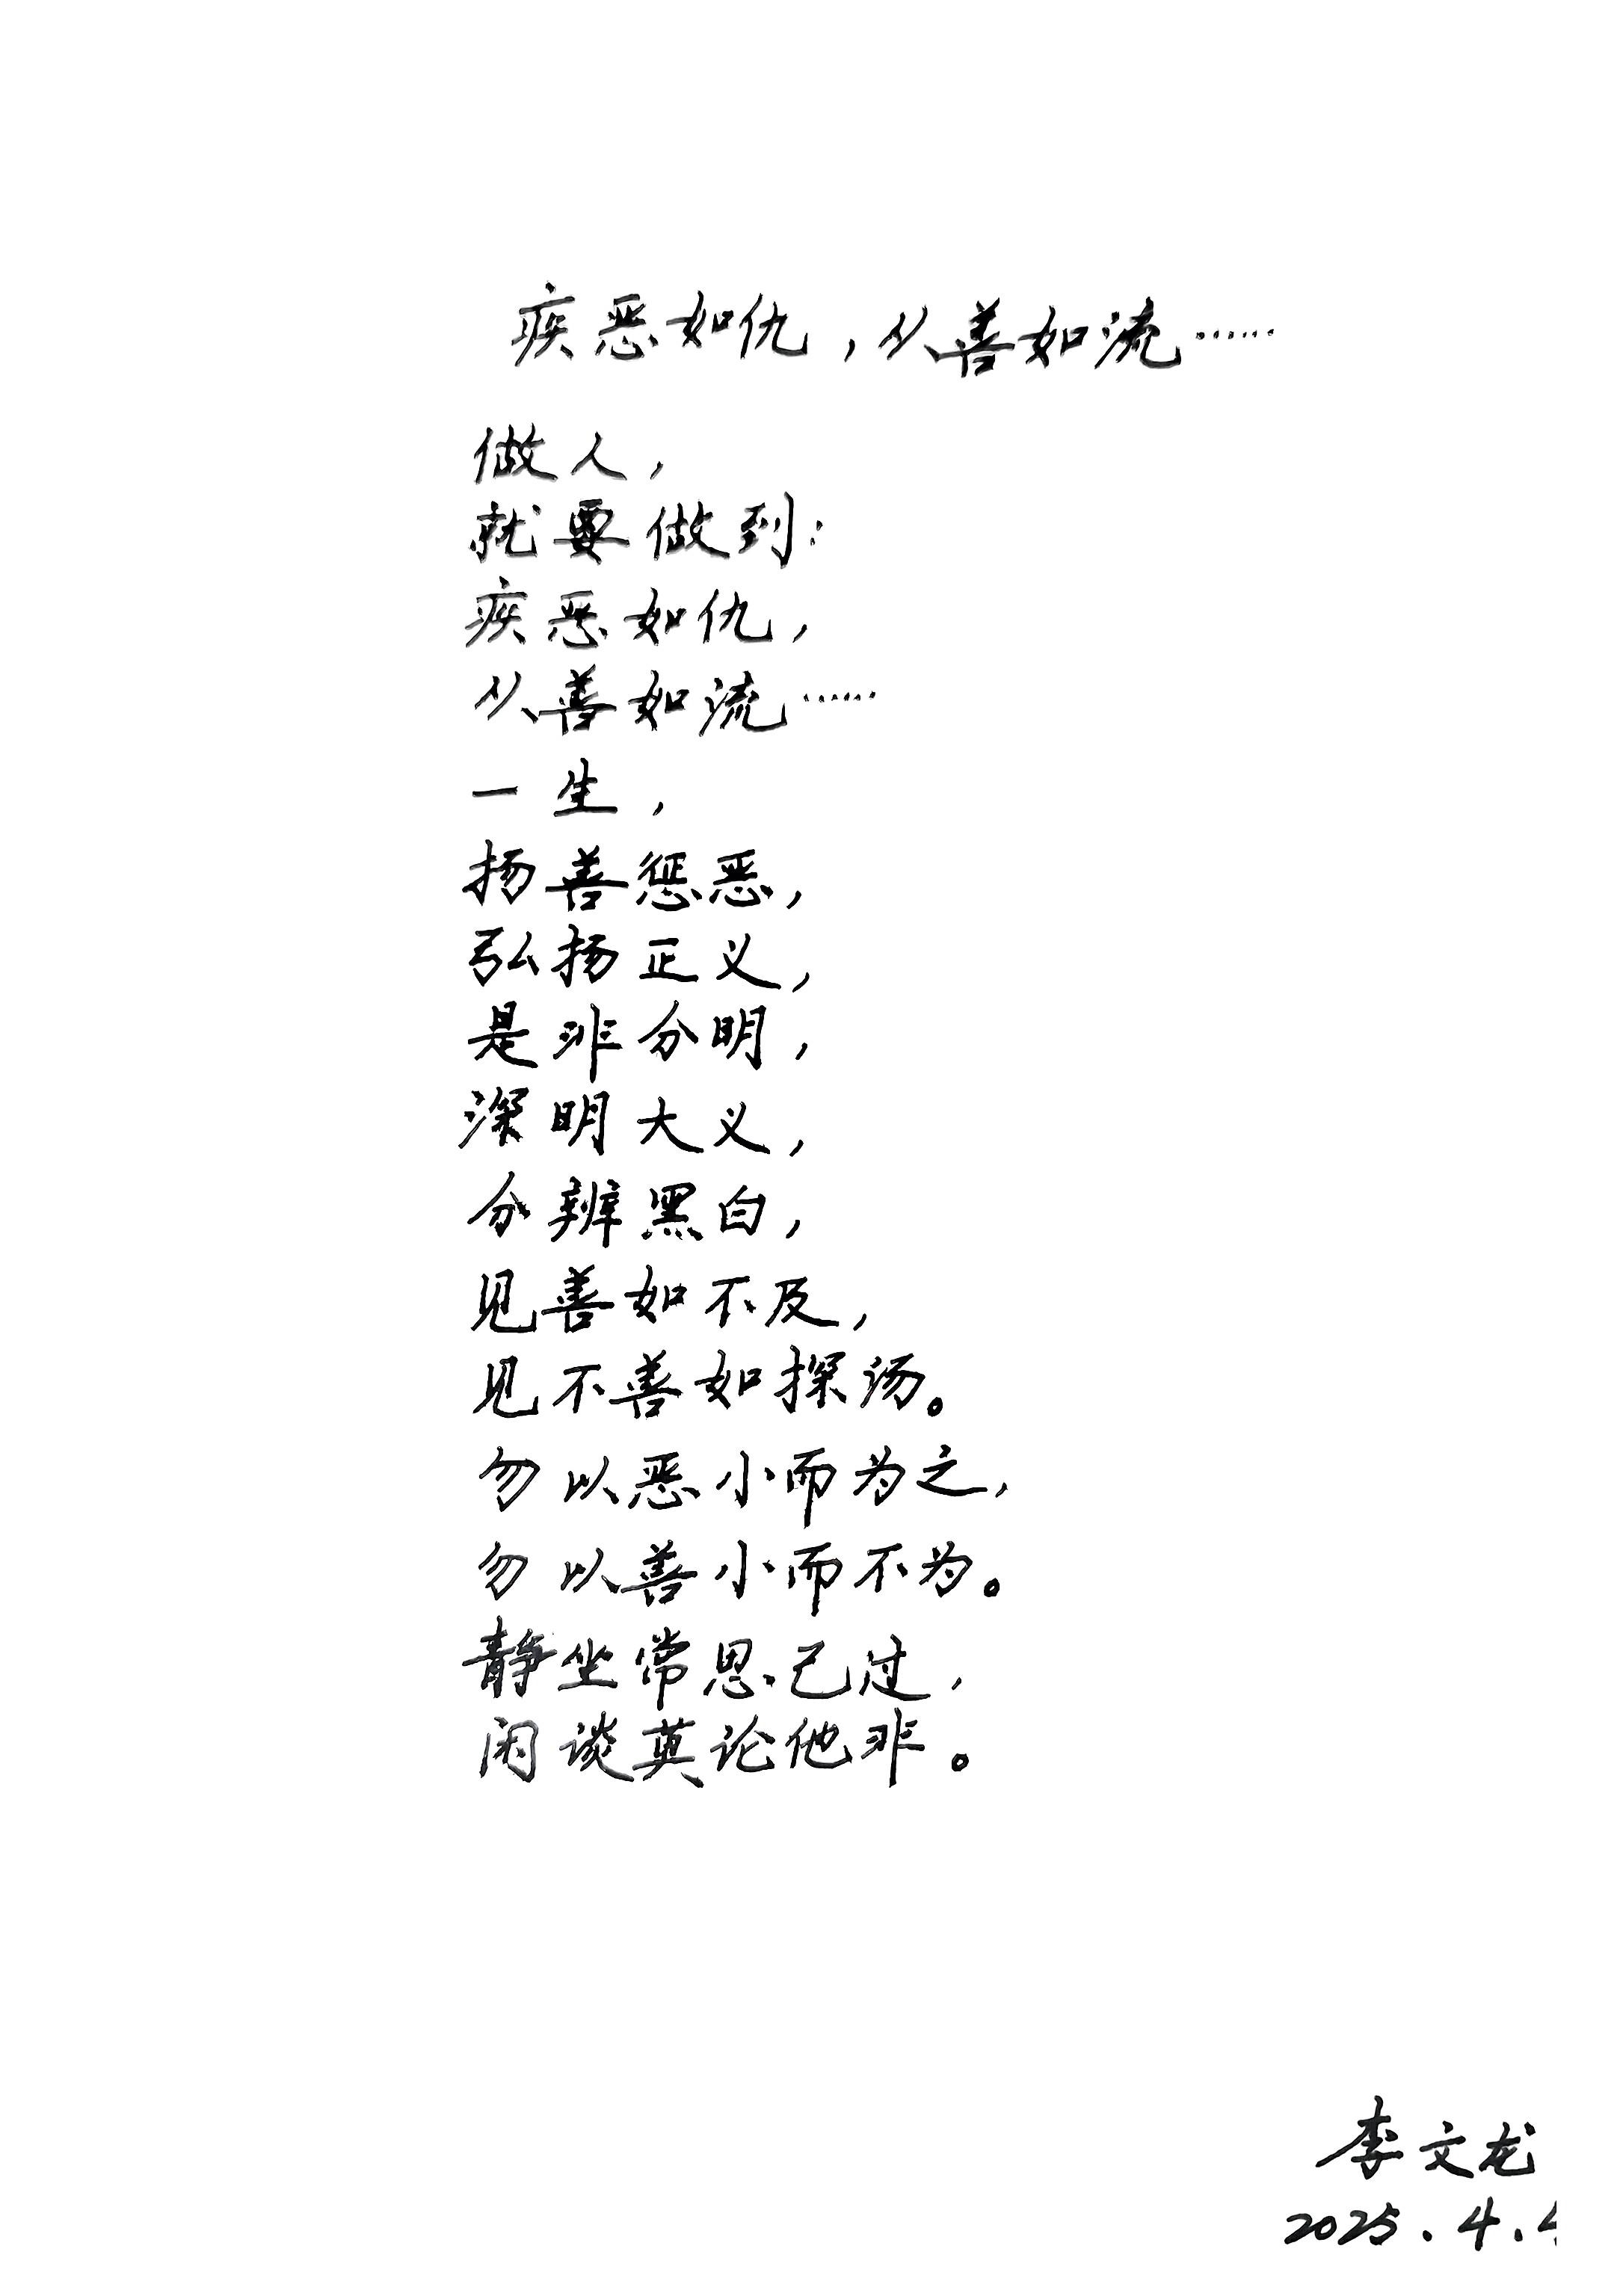 疾恶如仇，从善如流……
做人，
就要做到：
疾恶如仇，
从善如流……
一生，
扬善惩恶，
弘扬正义，
是非分明，
深明大义，
分辨黑白，
见善如不及，
见不善如探汤。
勿以恶小而为之，
勿以善小而不为。
静坐常思己过，
闲谈莫论他非。
李文龙
2025.4.4